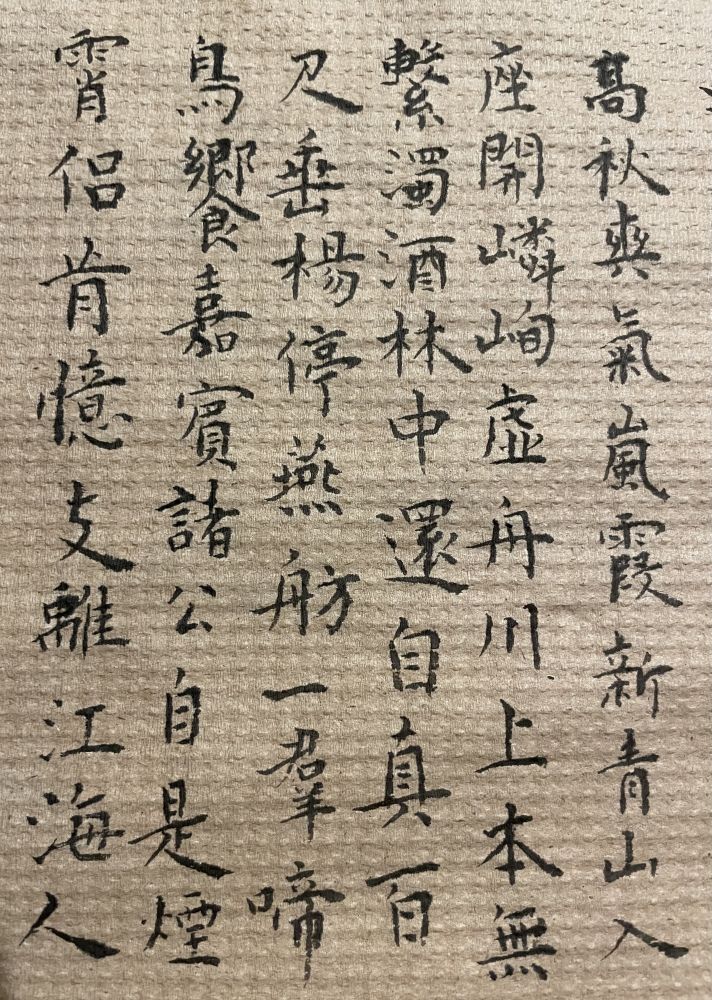 高秋爽氣嵐霞新青山入
座開嶙峋虛舟川上本無
繫濁酒林中還自真百
尺垂楊停燕舫一羣啼
鳥饗嘉賓諸公自是煙
霄侶肯憶支離江海人